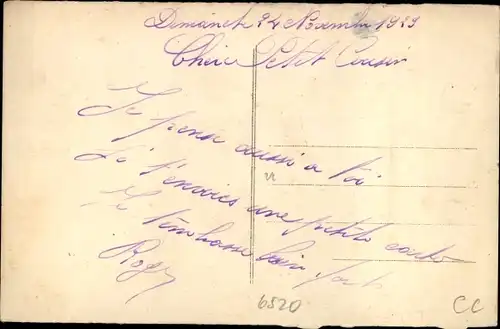 Dimanche 24 Novembre 19
Cher Petit Cousin
Je pense aussi a toi
Je t'envoies une petite carte
Je t'embrasse bien fort
Roger
6520
CC